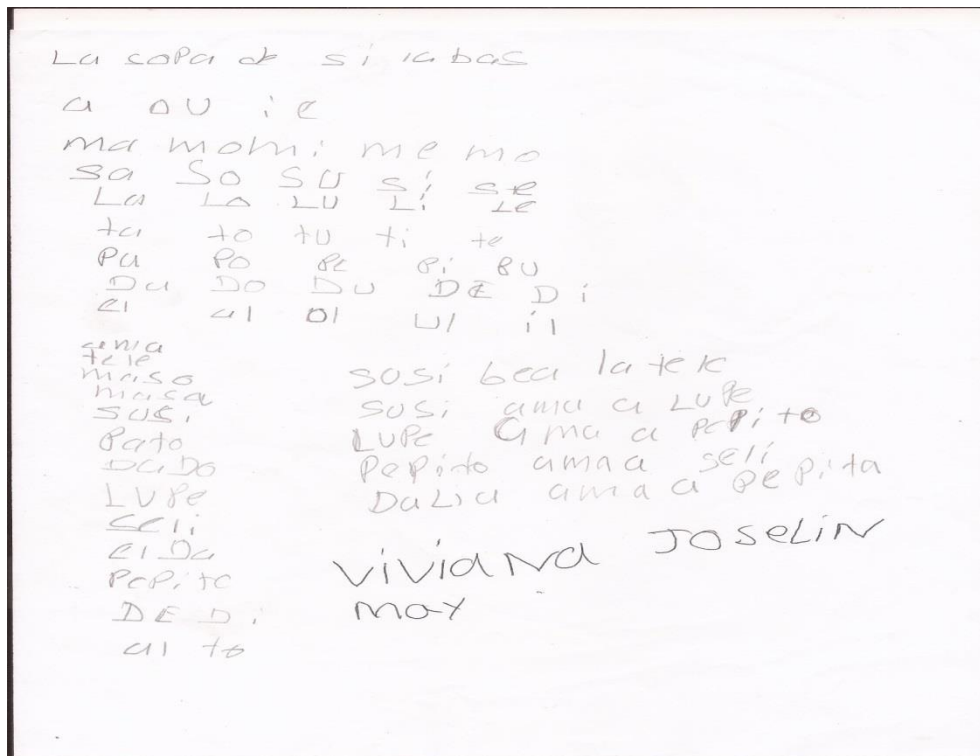 La sopa de si labas
a o u i e
ma mo mi me mo
sa so su si se
La Lo Lu Li Le
ta to tu ti te
Pa Po Pe Pi Pu
Da Do Du DE Di
el al ol ul il
ama
tele
maso
masa
susi
Pato
DaDo
LUPe
seli
elDa
PePito
DE Di
al to
sosi bea la tele
susi ama a LuPe
LUPe ama a PePito
PePito ama a seli
DaLia ama a PePita
viviaNa JOSeLiN
may